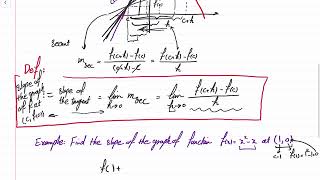 c c+h
Secant
m sec = f(c+h)-f(c) / (c+h)-c = f(c+h)-f(c) / h
Def:
slope of the graph of f at (c, f(c)) = slope of the tangent = lim h→0 m sec = lim h→0 f(c+h)-f(c) / h
Example: Find the slope of the graph of function f(x)= x²-x at (1,0)
c=1
f(1+